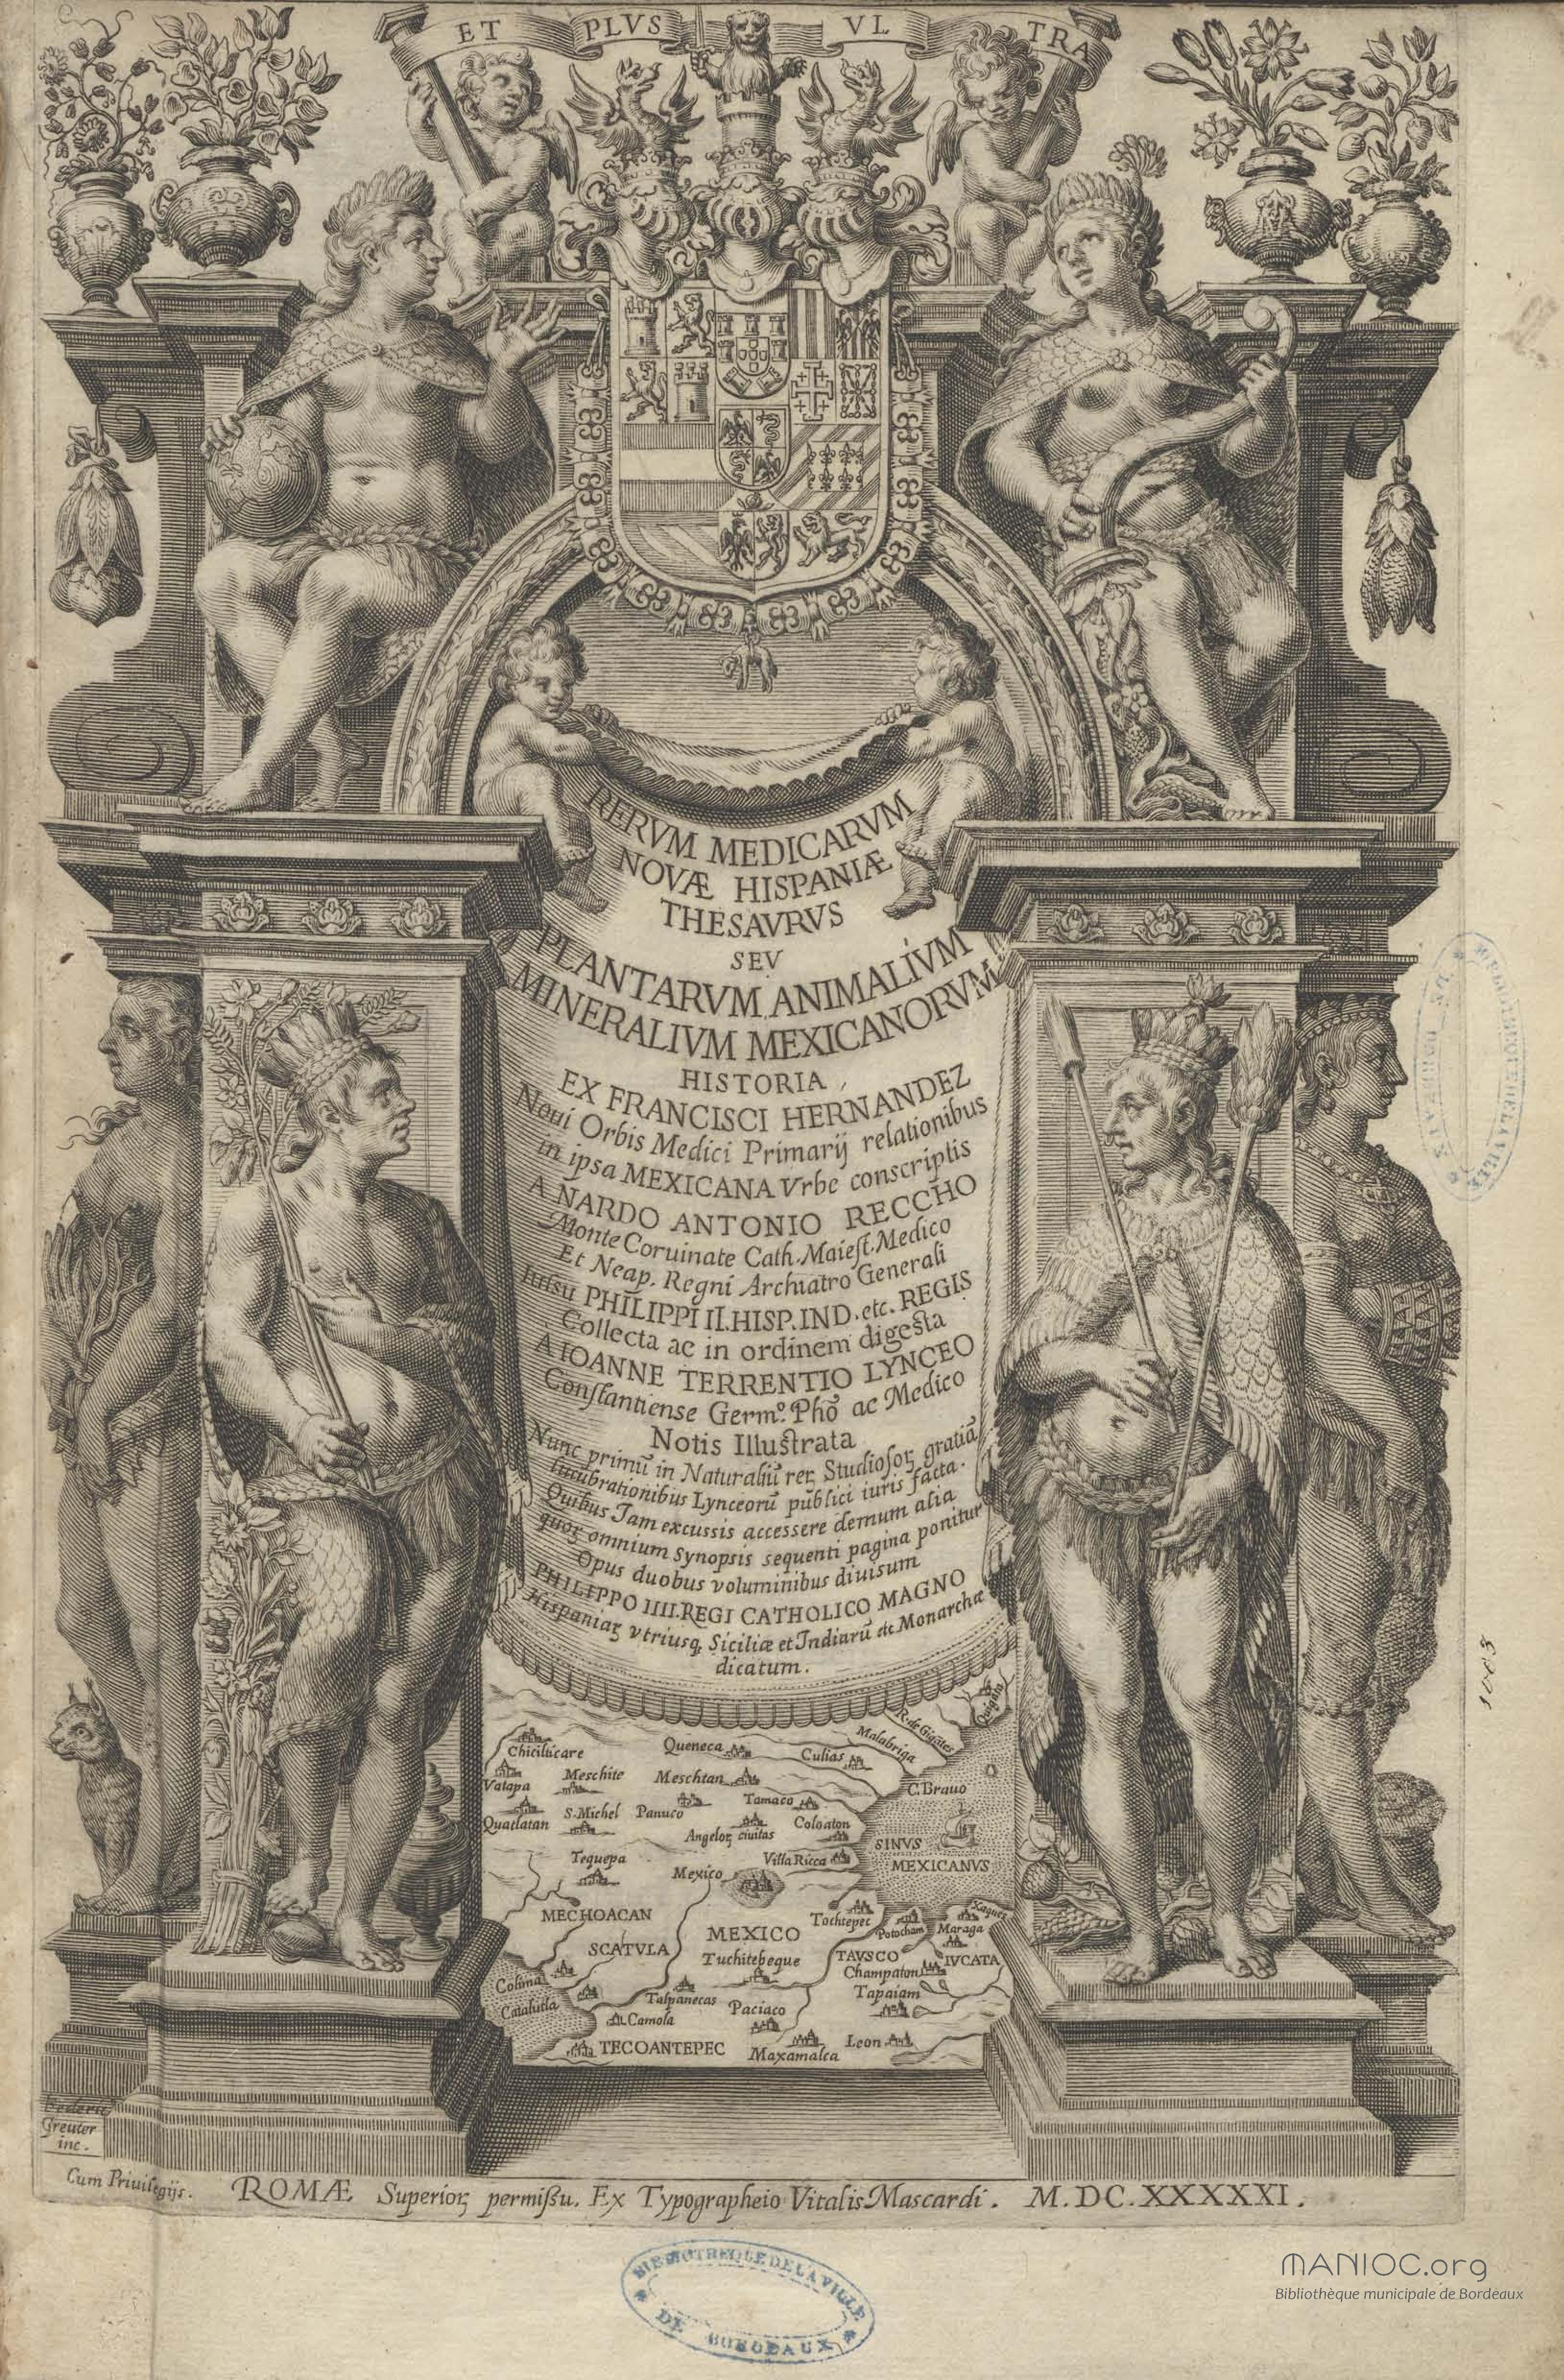 ET PLVS VLTRA
RERVM MEDICARVM
NOVÆ HISPANIÆ
THESAVRVS
SEV
PLANTARVM ANIMALIVM
MINERALIVM MEXICANORVM
HISTORIA
EX FRANCISCI HERNANDEZ
Noui Orbis Medici Primarij relationibus
in ipsa MEXICANA Vrbe conscriptis
A NARDO ANTONIO RECCHO
Monte Coruinate Cath. Maiest. Medico
Et Neap. Regni Archiatro Generali
Iussu PHILIPPI II. HISP. IND. etc. REGIS
Collecta ac in ordinem digesta
A IOANNE TERRENTIO LYNCEO
Constantiense Germ.º Phō ac Medico
Notis Illustrata
Nunc primū in Naturaliū reꝝ Studiosoꝝ gratiā
lucubrationibus Lynceorū publici iuris facta.
Quibus Jam excussis accessere demum alia
quoꝝ omnium Synopsis sequenti pagina ponitur
Opus duobus voluminibus diuisum
PHILIPPO IIII. REGI CATHOLICO MAGNO
Hispaniaꝝ vtriusq, Siciliæ et Indiarū etc Monarchæ
dicatum.
R. de Gigātes
Malabriga
Chicilticare
Queneca
Culias
Vatapa
Meschite
Meschtan
C. Brauo
Tamaco
Quatlatan
S. Michel
Panuco
Coloaton
Angeloꝝ ciuitas
SINVS
MEXICANVS
Tequepa
Mexico
Villa Ricca
MECHOACAN
Tochtepec
Potocham
Xaques
Maraga
MEXICO
SCATVLA
Tuchitebeque
TAVSCO
IVCATA
Champaton
Colima
Catahitla
Talpanecas
Paciaco
Tapaiam
Camola
TECOANTEPEC
Maxamalca
Leon
Federic
Greuter
inc.
Cum Priuilegijs.
ROMÆ Superioꝝ permissu. Ex Typographeio Vitalis Mascardi. M. DC. XXXXXI.
BIBLIOTHEQUE DE LA VILLE
DE BORDEAUX
BIBLIOTHEQUE DE LA VILLE
DE BORDEAUX
MANIOC.org
Bibliothèque municipale de Bordeaux